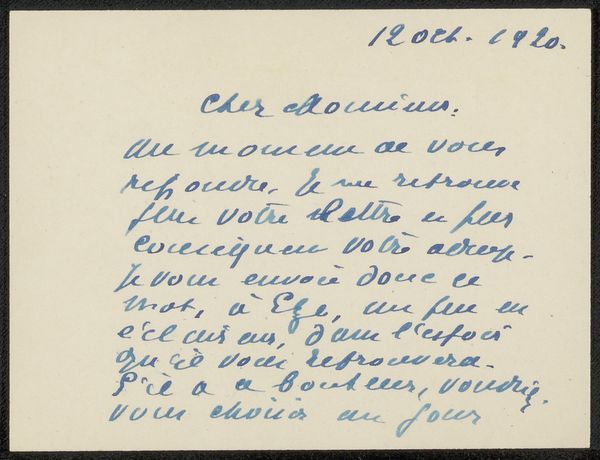 12 oct. 1920.
Cher Monsieur:
Au moment de vous
repondre, je ne retrouve
plus votre lettre ni par
consequent votre adresse.
Je vous envoie donc ce
mot, à Eze, un peu en
dans l'espoir
qu'il vous retrouvera.
S'il a ce bonheur, voudriez-
vous choisir un jour